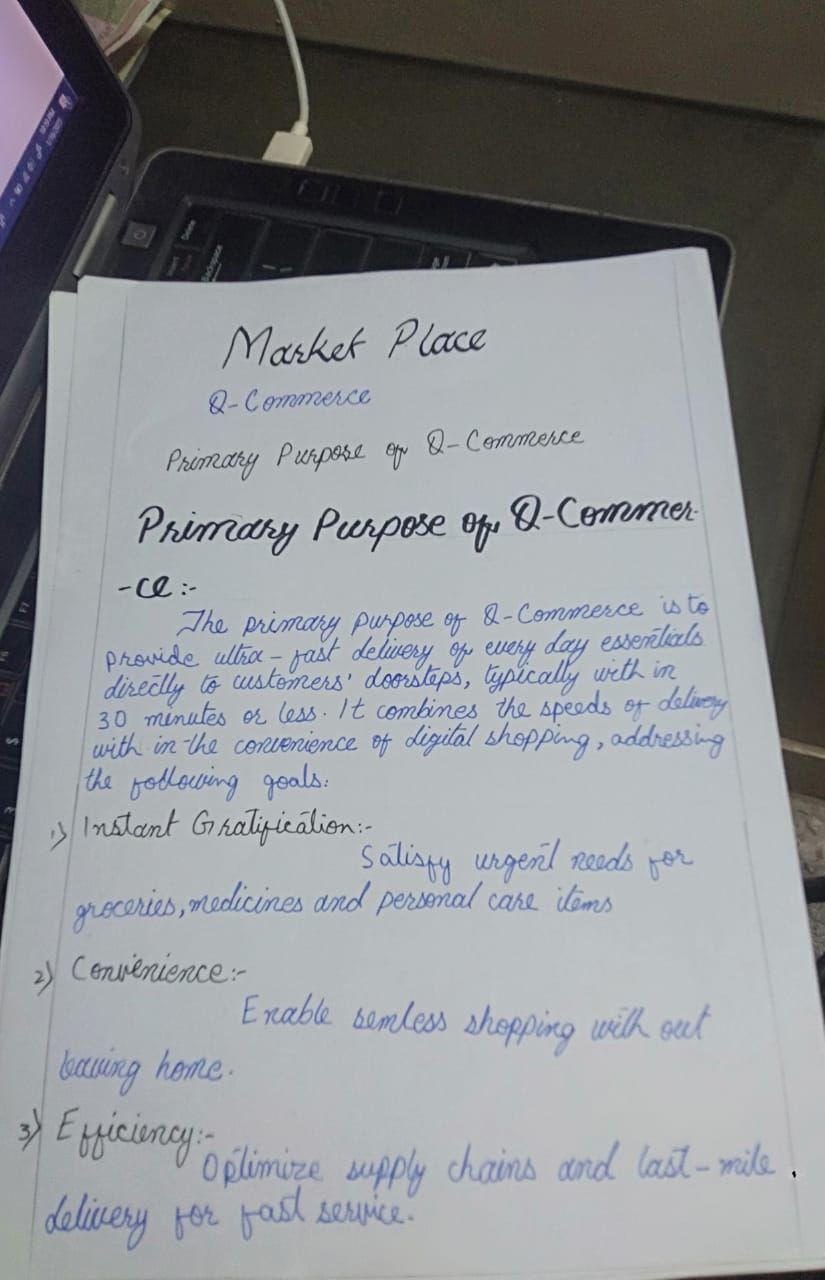 Market Place
Q-Commerce
Primary Purpose of Q-Commerce
Primary Purpose of Q-Commer
-ce:-
The primary purpose of Q-Commerce is to
provide ultra-fast delivery of every day essentials
directly to customers' doorsteps, typically with in
30 minutes or less. It combines the speeds of delivery
with in the convenience of digital shopping, addressing
the following goals:
1) Instant Gratification:-
Satisfy urgent needs for
groceries, medicines and personal care items
2) Convenience:-
Enable semless shopping with out
leaving home.
3) Efficiency:-
Optimize supply chains and last-mile
delivery for fast service.